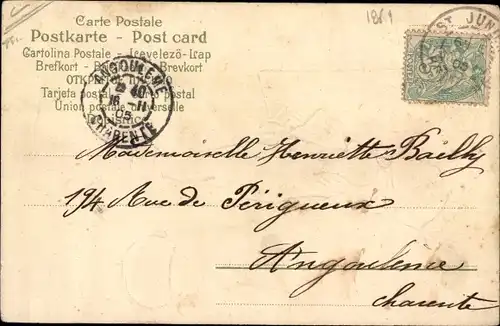 Carte Postale
Postkarte - Post card
Cartolina Postale - Levelező-Lap
Brefkort - Brevkort
Tarjeta postal
Union postale universelle
ANGOULEME
16 - 11
05
CHARENTE
1861
ST JUN
05
Mademoiselle Henriette Bailly
194 Rue de Périgueux
Angoulême
Charente